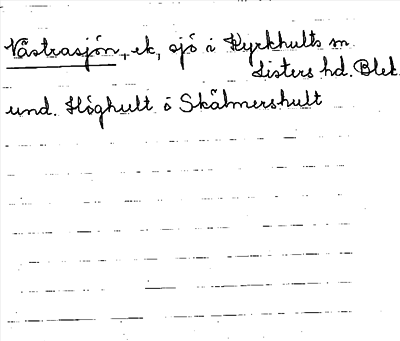 Västrasjön, ek, sjö i Kyrkhults sn
Listers hd. Blek.
und. Höghult o Skälmershult